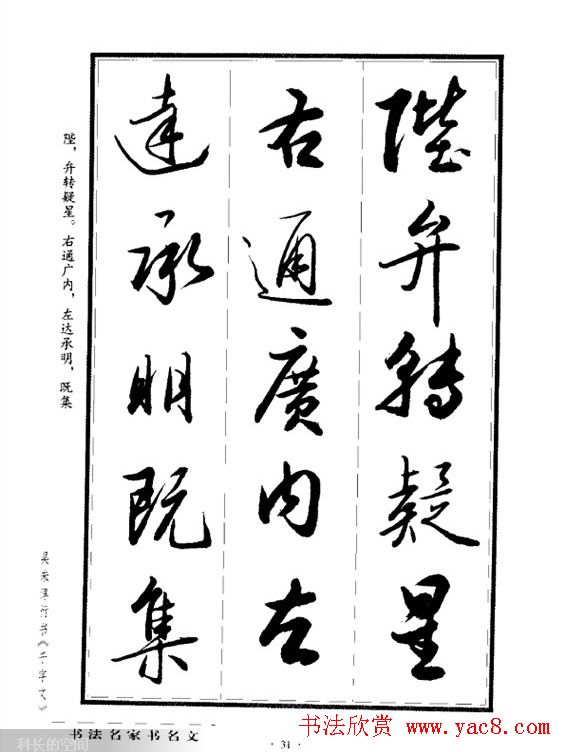 陛弁轉疑星
右通廣内左
達承明既集
陛，弁转疑星。右通广内，左达承明，既集
吴朱淳行书《千字文》
书法名家书名文
· 31 ·
书法欣赏 www.yac8.com
科长的空间